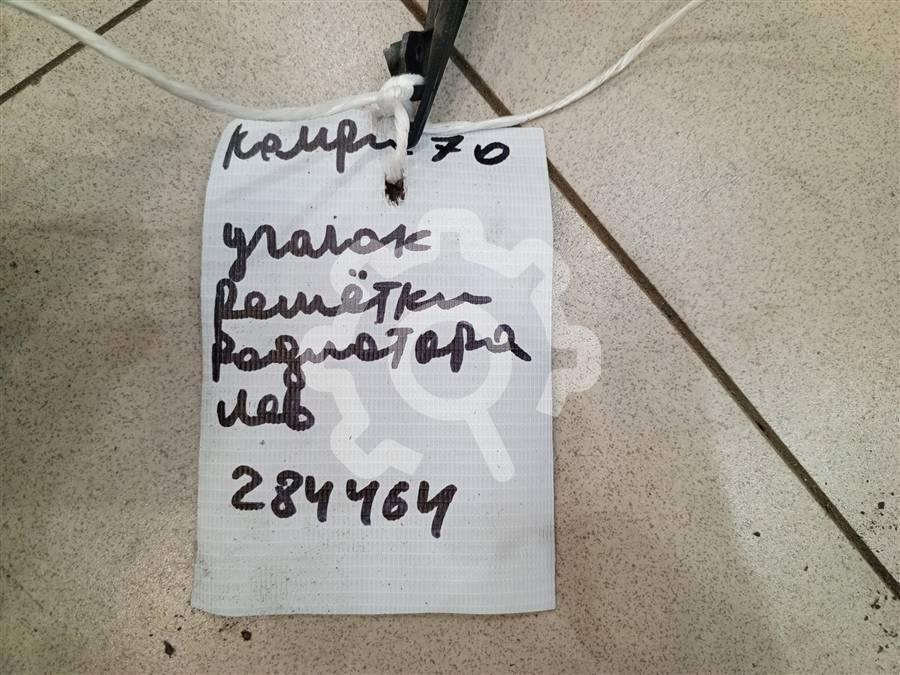 камри 70
уголок
решётки
радиатора
лев
284464